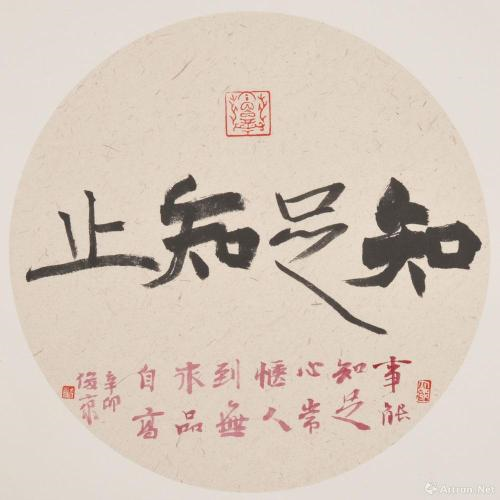 知足知止
事能
知足
心常
愜人
到無
求品
自高
辛卯
俊京
Artron.Net